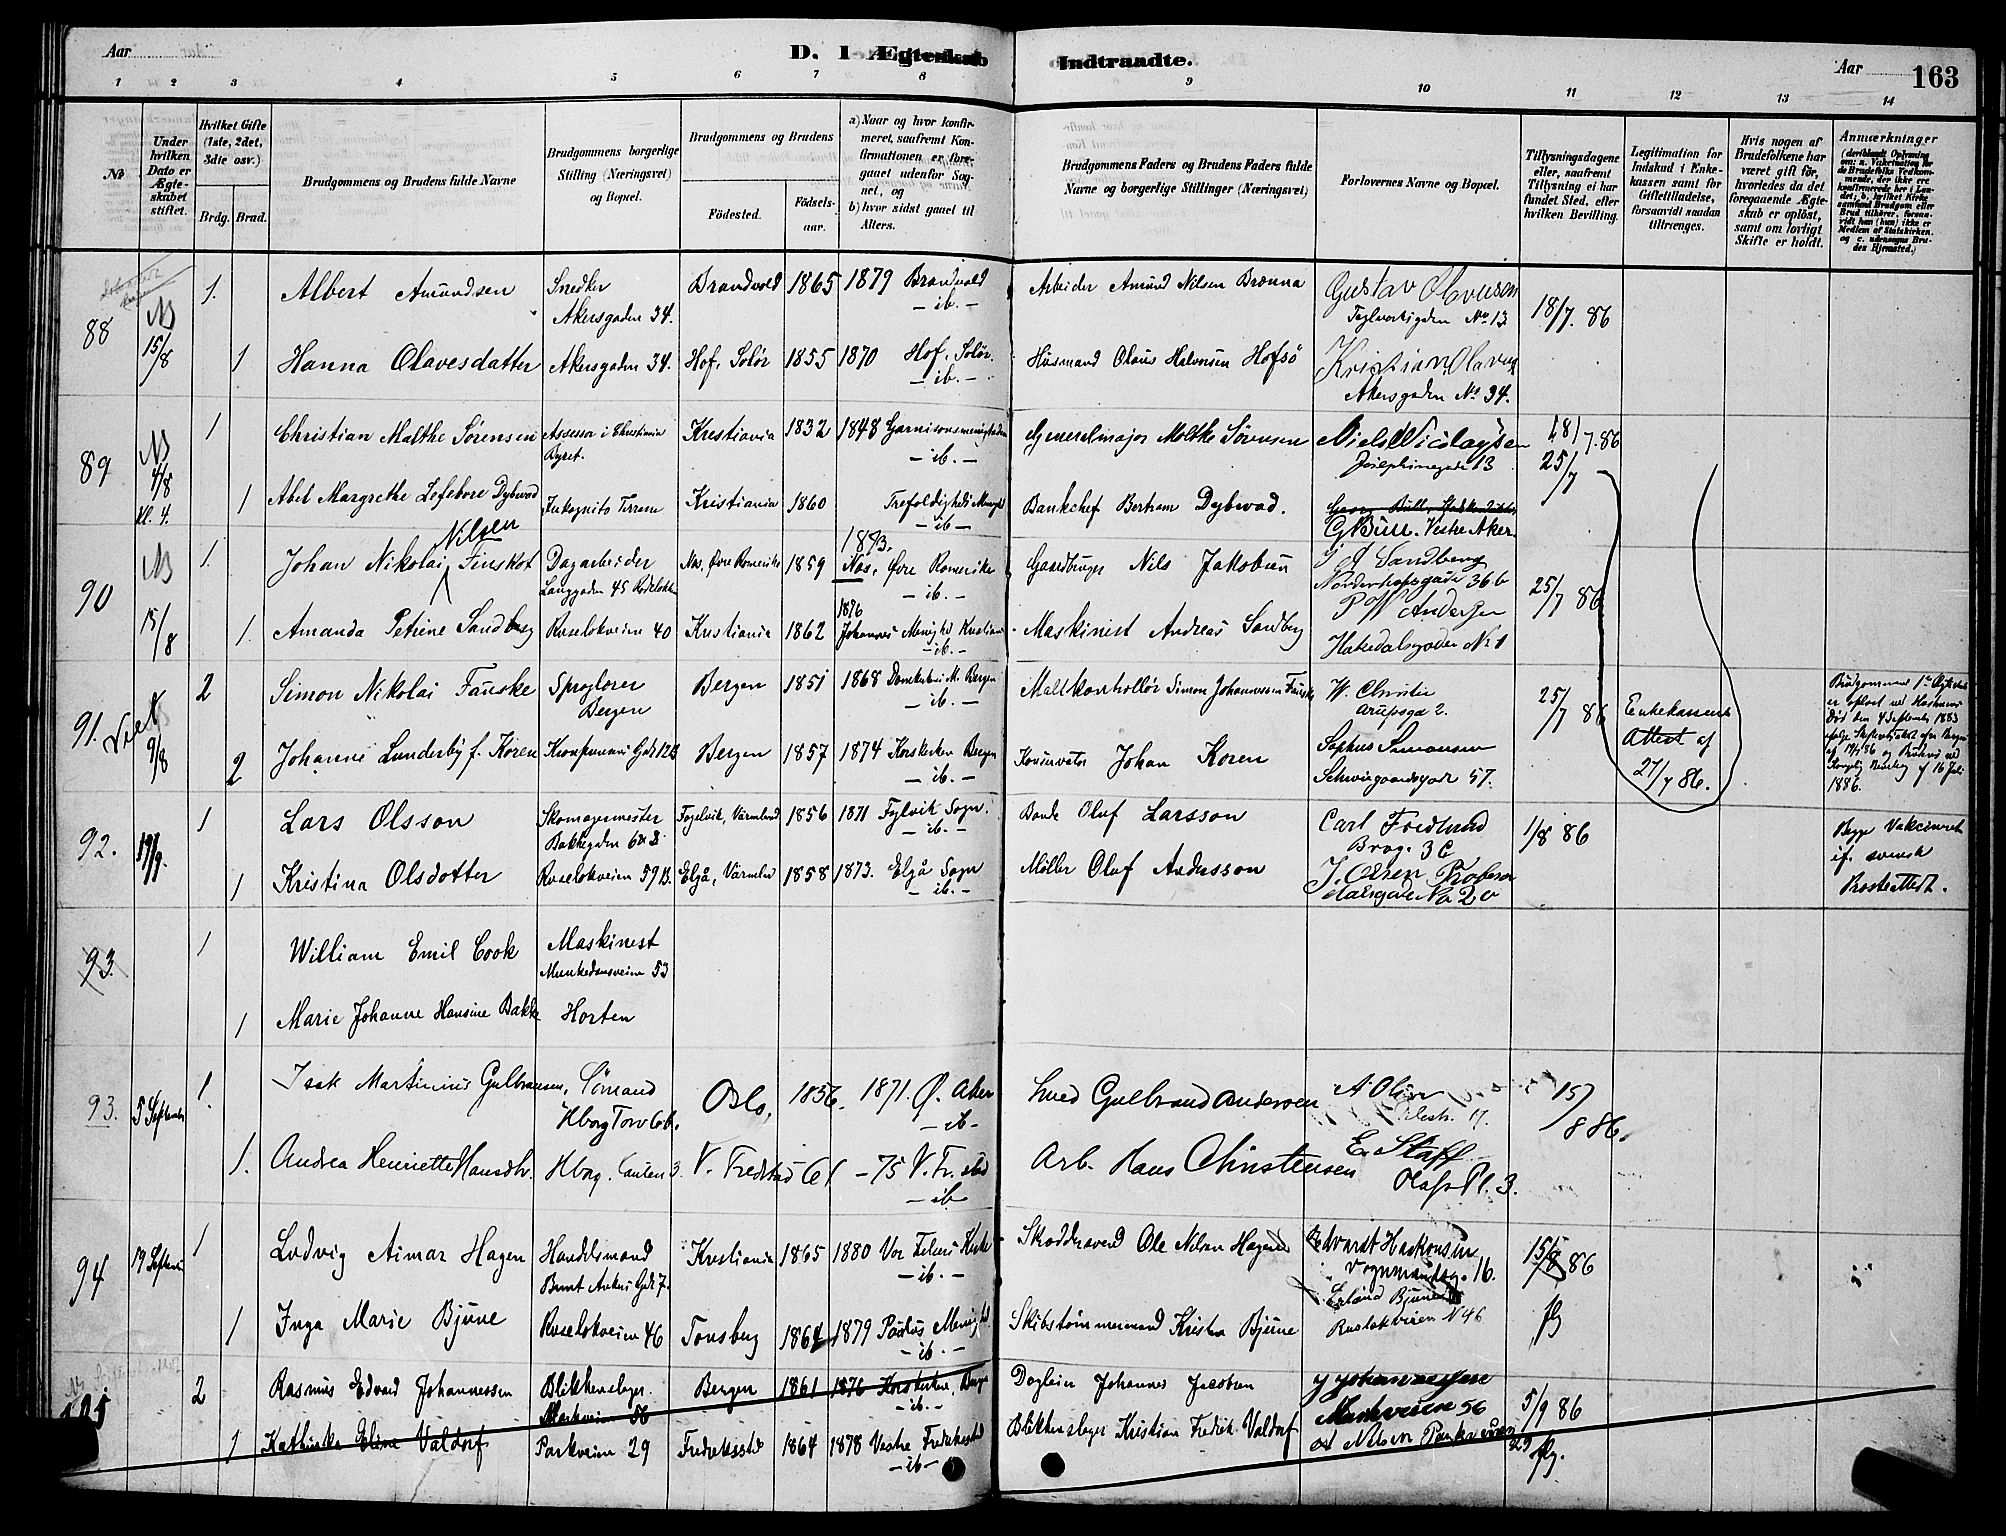 Aar
D. 1 Ægteskab Indtraadte.
Aar
163
1 2 3 4 5 6 7 8 9 10 11 12 13 14
No
Under hvilken Dato er Ægteskabet stiftet.
Hvilket Gifte (1ste, 2det, 3die osv.)
Brdg. Brud.
Brudgommens og Brudens fulde Navne
Brudgommens borgerlige Stilling (Næringsvei) og Bopæl.
Brudgommens og Brudens
Fødested.
Fødselsaar.
a) Naar og hvor konfirmeret, saafremt Konfirmationen er foregaaet udenfor Sognet, og
b) hvor sidst gaaet til Alters.
Brudgommens Faders og Brudens Faders fulde Navne og borgerlige Stillinger (Næringsvei)
Forlovernes Navne og Bopæl.
Tillysningsdagene eller, saafremt Tillysning ei har fundet Sted, efter hvilken Bevilling.
Legitimation for Indskud i Enkekassen samt for Giftetilladelse, forsaavidt saadan tiltrænges.
Hvis nogen af Brudefolkene har været gift før, hvorledes da det foregaaende Ægteskab er opløst, samt om lovligt Skifte er holdt.
Anmærkninger
88 15/8
1. Albert Amundsen Snedker Akersgaden 34. Brandvold 1865 1879 Brandvold -ib.- Arbeider Amund Nilsen Brønna Gustav Olavesen Teglverksgden No 13 18/7. 86
1 Hanna Olavesdatter Akersgaden 34. Hof, Solør 1855 1870 Hof, Solør. -ib.- Husmand Olaus Halvorsen Hofsø Kristian Olavesen Akersgaden No 34.
89 4/8 Kl. 4.
1 Christian Malthe Sørensen Assessor i Christiania Byret. Kristiania 1832 1848 Garnisonsmenigheden -ib.- Generalmajor Molthe Sørensen Niels Nicolaysen Josephinegade 13 18/7. 86 25/7
1 Abel Margrethe Lefebvre Dybwad Inkognito Terrasse Kristiania 1860 Trefoldigheds Menighed -ib- Bankchef Bertram Dybwad. G Bull. Vestre Aker.
90 15/8
1. Johan Nikolai Nilsen Finskot Dagarbeider Langgaden 45 Rodeløkken Nes, Øvre Romerike 1859 1873. Nes, Øvre Romerike -ib.- Gaardbruger Nils Jakobsen J A Sandberg Norderhovsgade 36 b 25/7 86
1. Amanda Petrine Sandberg Ruseløkveien 40 Kristiania 1862 1876 Johannes Menighed Kristiania -ib.- Maskinist Andreas Sandberg P W Andersen Hakedalsgaden No 1
91. 9/8
2 Simon Nikolai Fauske Sproglærer Bergen Bergen 1851 1868 Domkirkens M. Bergen -ib.- Maltkontrollør Simon Johannessen Fauske W. Christie Arupsgd 2. 25/7 86 Enkekassens Attest af 27/7 86.
2 Johanne Lunderby f. Koren Kronprinsens Gade 12B Bergen 1857 1874 Korskirken Bergen -ib.- Konservator Johan Koren Sophus Simonsen Schweigaardsgade 57.
Brudgommens 1ste Ægteskab er opløst ved Hustruens Død den 4 September 1883 ifølge Skifteattest 1886.
92. 19/9.
1 Lars Olsson Skomagermester Bakkegden 6 Fogelvik, Värmland 1856 1871 Fogelvik Sogn. -ib.- Bonde Olof Larsson Carl Fredlund Brog. 3 C 1/8 86 Begge Vakcineret if. svensk Presteattest.
1 Kristina Olsdotter Ruseløkveien 59 B. Elgå, Värmland 1858 1873. Elgå Sogn -ib.- Møller Olof Andersson J. Olsen
93.
1 William Emil Cook Maskinist Munkedamsveien 53
1 Marie Johanne Hansine Bakke Horten
93. 5 September
1. Isak Martinius Gulbrandsen, Sømand Hborg Torv 6 b. Oslo, 1856. 1871. Ø. Aker -ib- Gulbrand Andersen A. Olsen 17. 15/8 86.
1. Andrea Henriette Hansdtr. Hborg. V. Fredstad 61 -75 V. Fr.stad -ib- Arb. Hans Christensen E. Staff Olafs Pl. 3.
94 19 Septemb.
1 Ludvig Aimar Hagen Handelsmand Bernt Ankers Gade 7. Kristiania 1865 1880 Vor Frelsers Kirke -ib.- Ole Nilsen Hagen Edvardt Haakonsen Vognmandsg. 16. 15/8 86
1 Inga Marie Bjune Ruseløkveien 46 Tønsberg 1864 1879 Paulus Menighed -ib.- Skibstømmermand Kristen Bjune Erland Bjune Ruseløkveien N 46 flg
2 Rasmus Edvard Johannessen Blikkenslager. Markveien 56 Bergen 1861 1876 Korskirken, Bergen -ib.- Johannes Jacobsen Johannessen Markveien 56 5/9 86
1 Kathinka Eline Valdorf Parkveien 29 Fredriksstad 1864 1878 Vestre Fredrikstad -ib- Blikkenslager Kristian Fredrik Valdorf Nilsen Parkveien 29 flg.